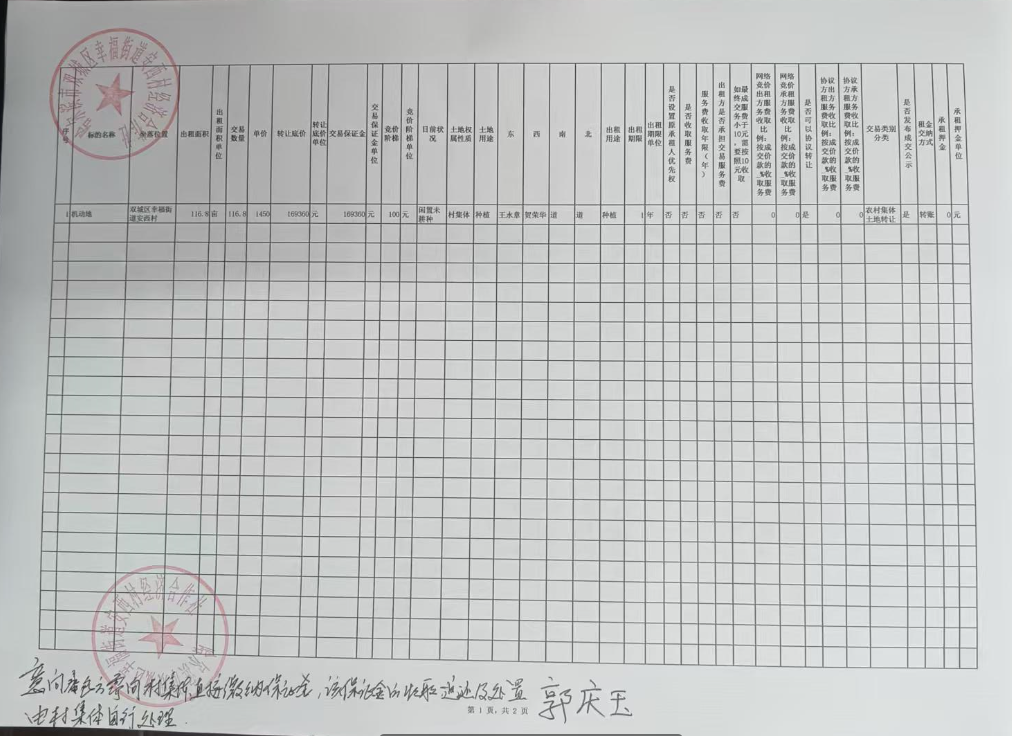 哈尔滨市双城区幸福街道安西村经济合作社
序号 标的名称 坐落位置 出租面积 出租面积单位 交易数量 单价 转让底价 转让底价单位 交易保证金 交易保证金单位 竞价阶梯 竞价阶梯单位 目前状况 土地权属性质 土地用途 东 西 南 北 出租用途 出租期限 出租期限单位 是否设置原承租人优先权 是否收取服务费 服务费收取年限（年） 出租方是否承担交易服务费 如最终成交服务费小于10元，需要按照10元收取 网络竞价出租方服务费收取比例：按成交价款的_%收取服务费 网络竞价承租方服务费收取比例：按成交价款的_%收取服务费 是否可以协议转让 协议出租方服务费收取比例：按成交价款的_%收取服务费 协议承租方服务费收取比例：按成交价款的_%收取服务费 交易类别分类 是否发布成交公示 租金交纳方式 承租押金 承租押金单位
1 机动地 双城区幸福街道安西村 116.8 亩 116.8 1450 169360 元 169360 元 100 元 闲置未耕种 村集体 种植 王永章 贺荣华 道 道 种植 1 年 否 否 否 否 否 0 0 是 0 0 农村集体土地转让 是 转账 0 元
意向 方 向村集体直接缴纳保证金，该保证金的收取 退还及处置
由村集体自行处理.
郭庆玉
第 1 页，共 2 页